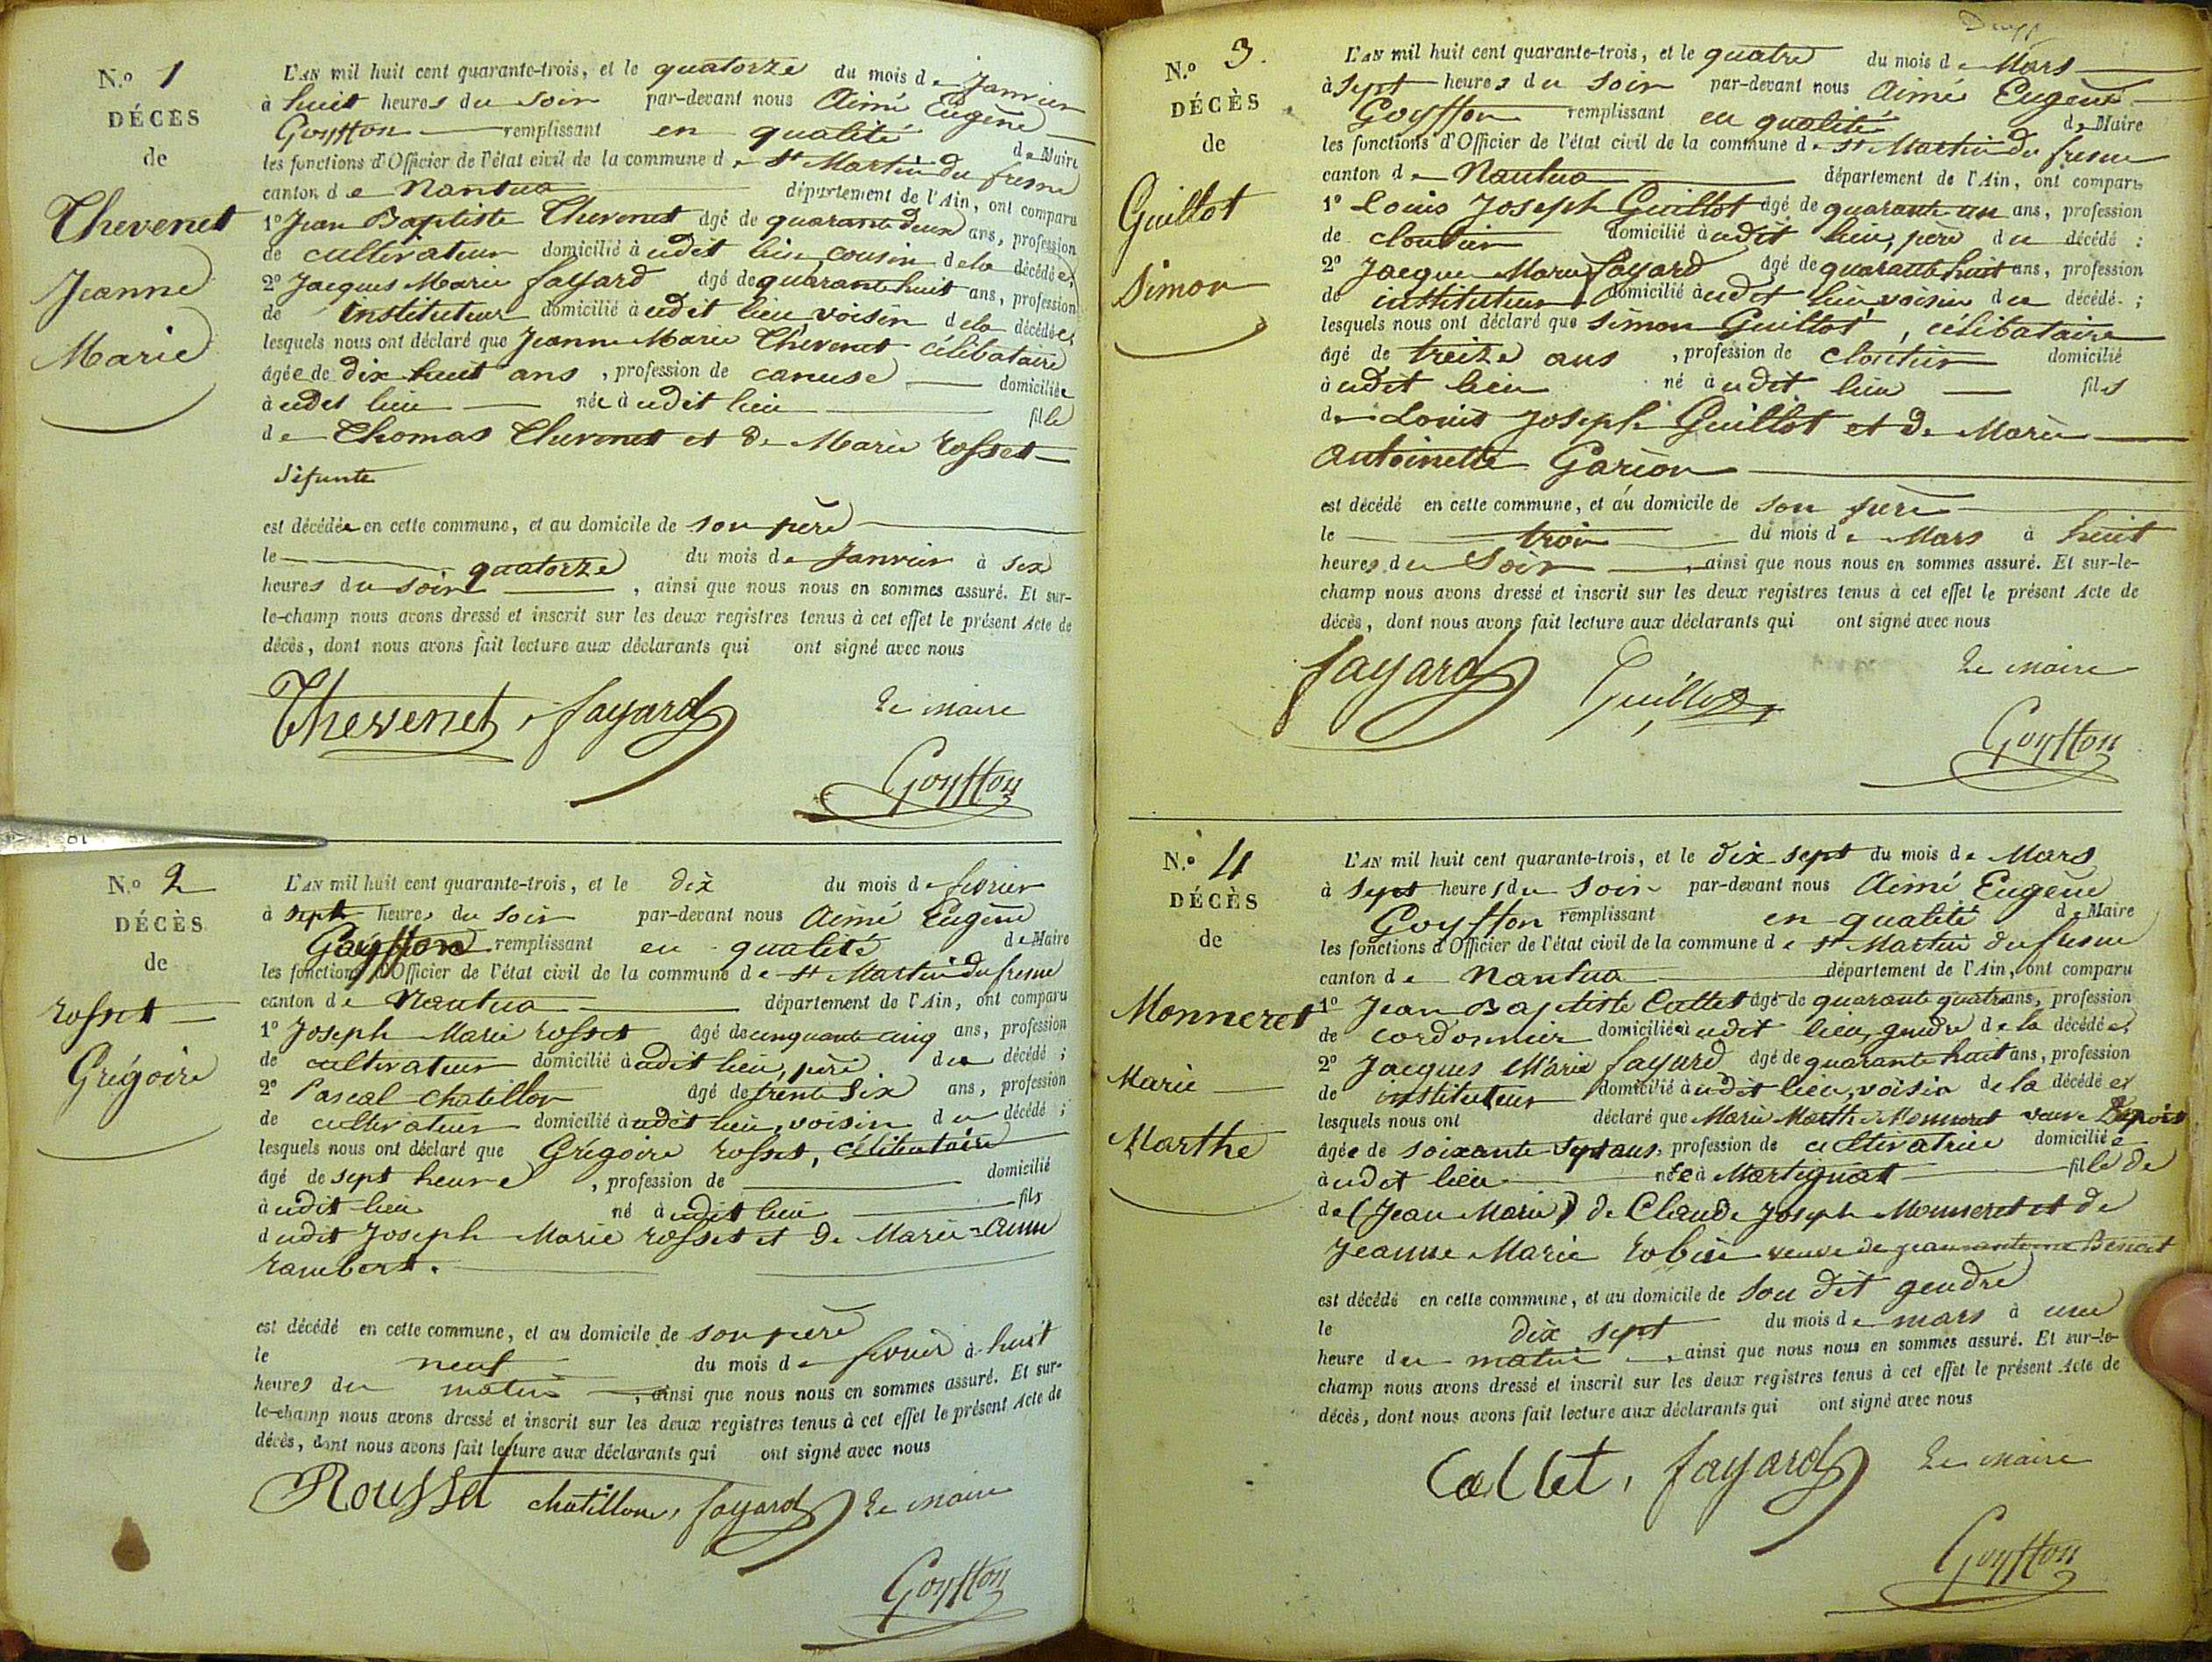 N.º 1
DÉCÈS
de
Thevenet
Jeanne
Marie
L'AN mil huit cent quarante-trois, et le quatorze du mois de Janvier
à huit heures du soir par-devant nous Aimé Eugène
Goyffon remplissant en qualité de Maire
les fonctions d'Officier de l'état civil de la commune de St Martin du fresne
canton de Nantua département de l'Ain, ont comparu
1º Jean Baptiste Thevenet âgé de quarante deux ans, profession
de cultivateur domicilié à udit lieu cousin dela décédée,
2º Jacques Marie fayard âgé de quarante huit ans, profession
de instituteur domicilié à udit lieu voisin dela décédée,
lesquels nous ont déclaré que Jeanne Marie Thevenet célibataire
âgée de dix huit ans , profession de canuse domiciliée
à udit lieu née à udit lieu fille
de Thomas Thevenet et de Marie Rosset
défunte
est décédée en cette commune, et au domicile de son père
le quatorze du mois de Janvier à six
heures du soir , ainsi que nous nous en sommes assuré. Et sur-
le-champ nous avons dressé et inscrit sur les deux registres tenus à cet effet le présent Acte de
décès, dont nous avons fait lecture aux déclarants qui ont signé avec nous
Thevenet, fayard Le maire
Goyffon
N.º 2
DÉCÈS
de
Rosset
Grégoire
L'AN mil huit cent quarante-trois, et le dix du mois de fevrier
à sept heures du soir par-devant nous Aimé Eugène
Goyffon remplissant en qualité de Maire
les fonctions d'Officier de l'état civil de la commune de St Martin du fresne
canton de Nantua département de l'Ain, ont comparu
1º Joseph Marie Rosset âgé de cinquante cinq ans, profession
de cultivateur domicilié à udit lieu, père du décédé ;
2º Pascal chatillon âgé de trente six ans, profession
de cultivateur domicilié à udit lieu, voisin du décédé ;
lesquels nous ont déclaré que Grégoire Rosset, célibataire
âgé de sept heure , profession de domicilié
à udit lieu né à udit lieu fils
dudit Joseph Marie Rosset et de Marie-Anne
Rambert.
est décédé en cette commune, et au domicile de son père
le neuf du mois de fevrier à huit
heures du matin , ainsi que nous nous en sommes assuré. Et sur-
le-champ nous avons dressé et inscrit sur les deux registres tenus à cet effet le présent Acte de
décès, dont nous avons fait lecture aux déclarants qui ont signé avec nous
Rousset chatillon, fayard Le maire
Goyffon
N.º 3.
DÉCÈS
de
Guillot
Simon
L'AN mil huit cent quarante-trois, et le quatre du mois de Mars
à sept heures du soir par-devant nous Aimé Eugène
Goyffon remplissant en qualité de Maire
les fonctions d'Officier de l'état civil de la commune de St Martin du fresne
canton de Nantua département de l'Ain, ont comparu
1º Louis Joseph Guillot âgé de quarante un ans, profession
de cloutier domicilié à udit lieu, père du décédé ;
2º Jacques Marie fayard âgé de quarante huit ans, profession
de instituteur domicilié à udit lieu, voisin du décédé ;
lesquels nous ont déclaré que Simon Guillot, célibataire
âgé de treize ans , profession de cloutier domicilié
à udit lieu né à udit lieu fils
de Louis Joseph Guillot et de Marie
Antoinette Garion
est décédé en cette commune, et au domicile de son père
le trois du mois de Mars à huit
heures du Soir , ainsi que nous nous en sommes assuré. Et sur-le-
champ nous avons dressé et inscrit sur les deux registres tenus à cet effet le présent Acte de
décès, dont nous avons fait lecture aux déclarants qui ont signé avec nous
fayard Guillot Le maire
Goyffon
N.º 4
DÉCÈS
de
Monneret
Marie
Marthe
L'AN mil huit cent quarante-trois, et le dix sept du mois de Mars
à sept heures du soir par-devant nous Aimé Eugène
Goyffon remplissant en qualité de Maire
les fonctions d'Officier de l'état civil de la commune de St Martin du fresne
canton de Nantua département de l'Ain, ont comparu
1º Jean Baptiste Callet âgé de quarante quatre ans, profession
de cordonnier domicilié à udit lieu, gendre de la décédée,
2º Jacques Marie fayard âgé de quarante huit ans, profession
de instituteur domicilié à udit lieu, voisin de la décédée
lesquels nous ont déclaré que Marie Marthe Monneret veuve
âgée de soixante sept ans, profession de cultivatrice domiciliée
à udit lieu née à Martignat fille de
de (Jean Marie) de Claude Joseph Monneret et de
Jeanne Marie Robin veuve de jean antoine Benoit
est décédé en cette commune, et au domicile de son dit gendre
le dix sept du mois de mars à une
heure du matin , ainsi que nous nous en sommes assuré. Et sur-le-
champ nous avons dressé et inscrit sur les deux registres tenus à cet effet le présent Acte de
décès, dont nous avons fait lecture aux déclarants qui ont signé avec nous
Callet, fayard Le maire
Goyffon